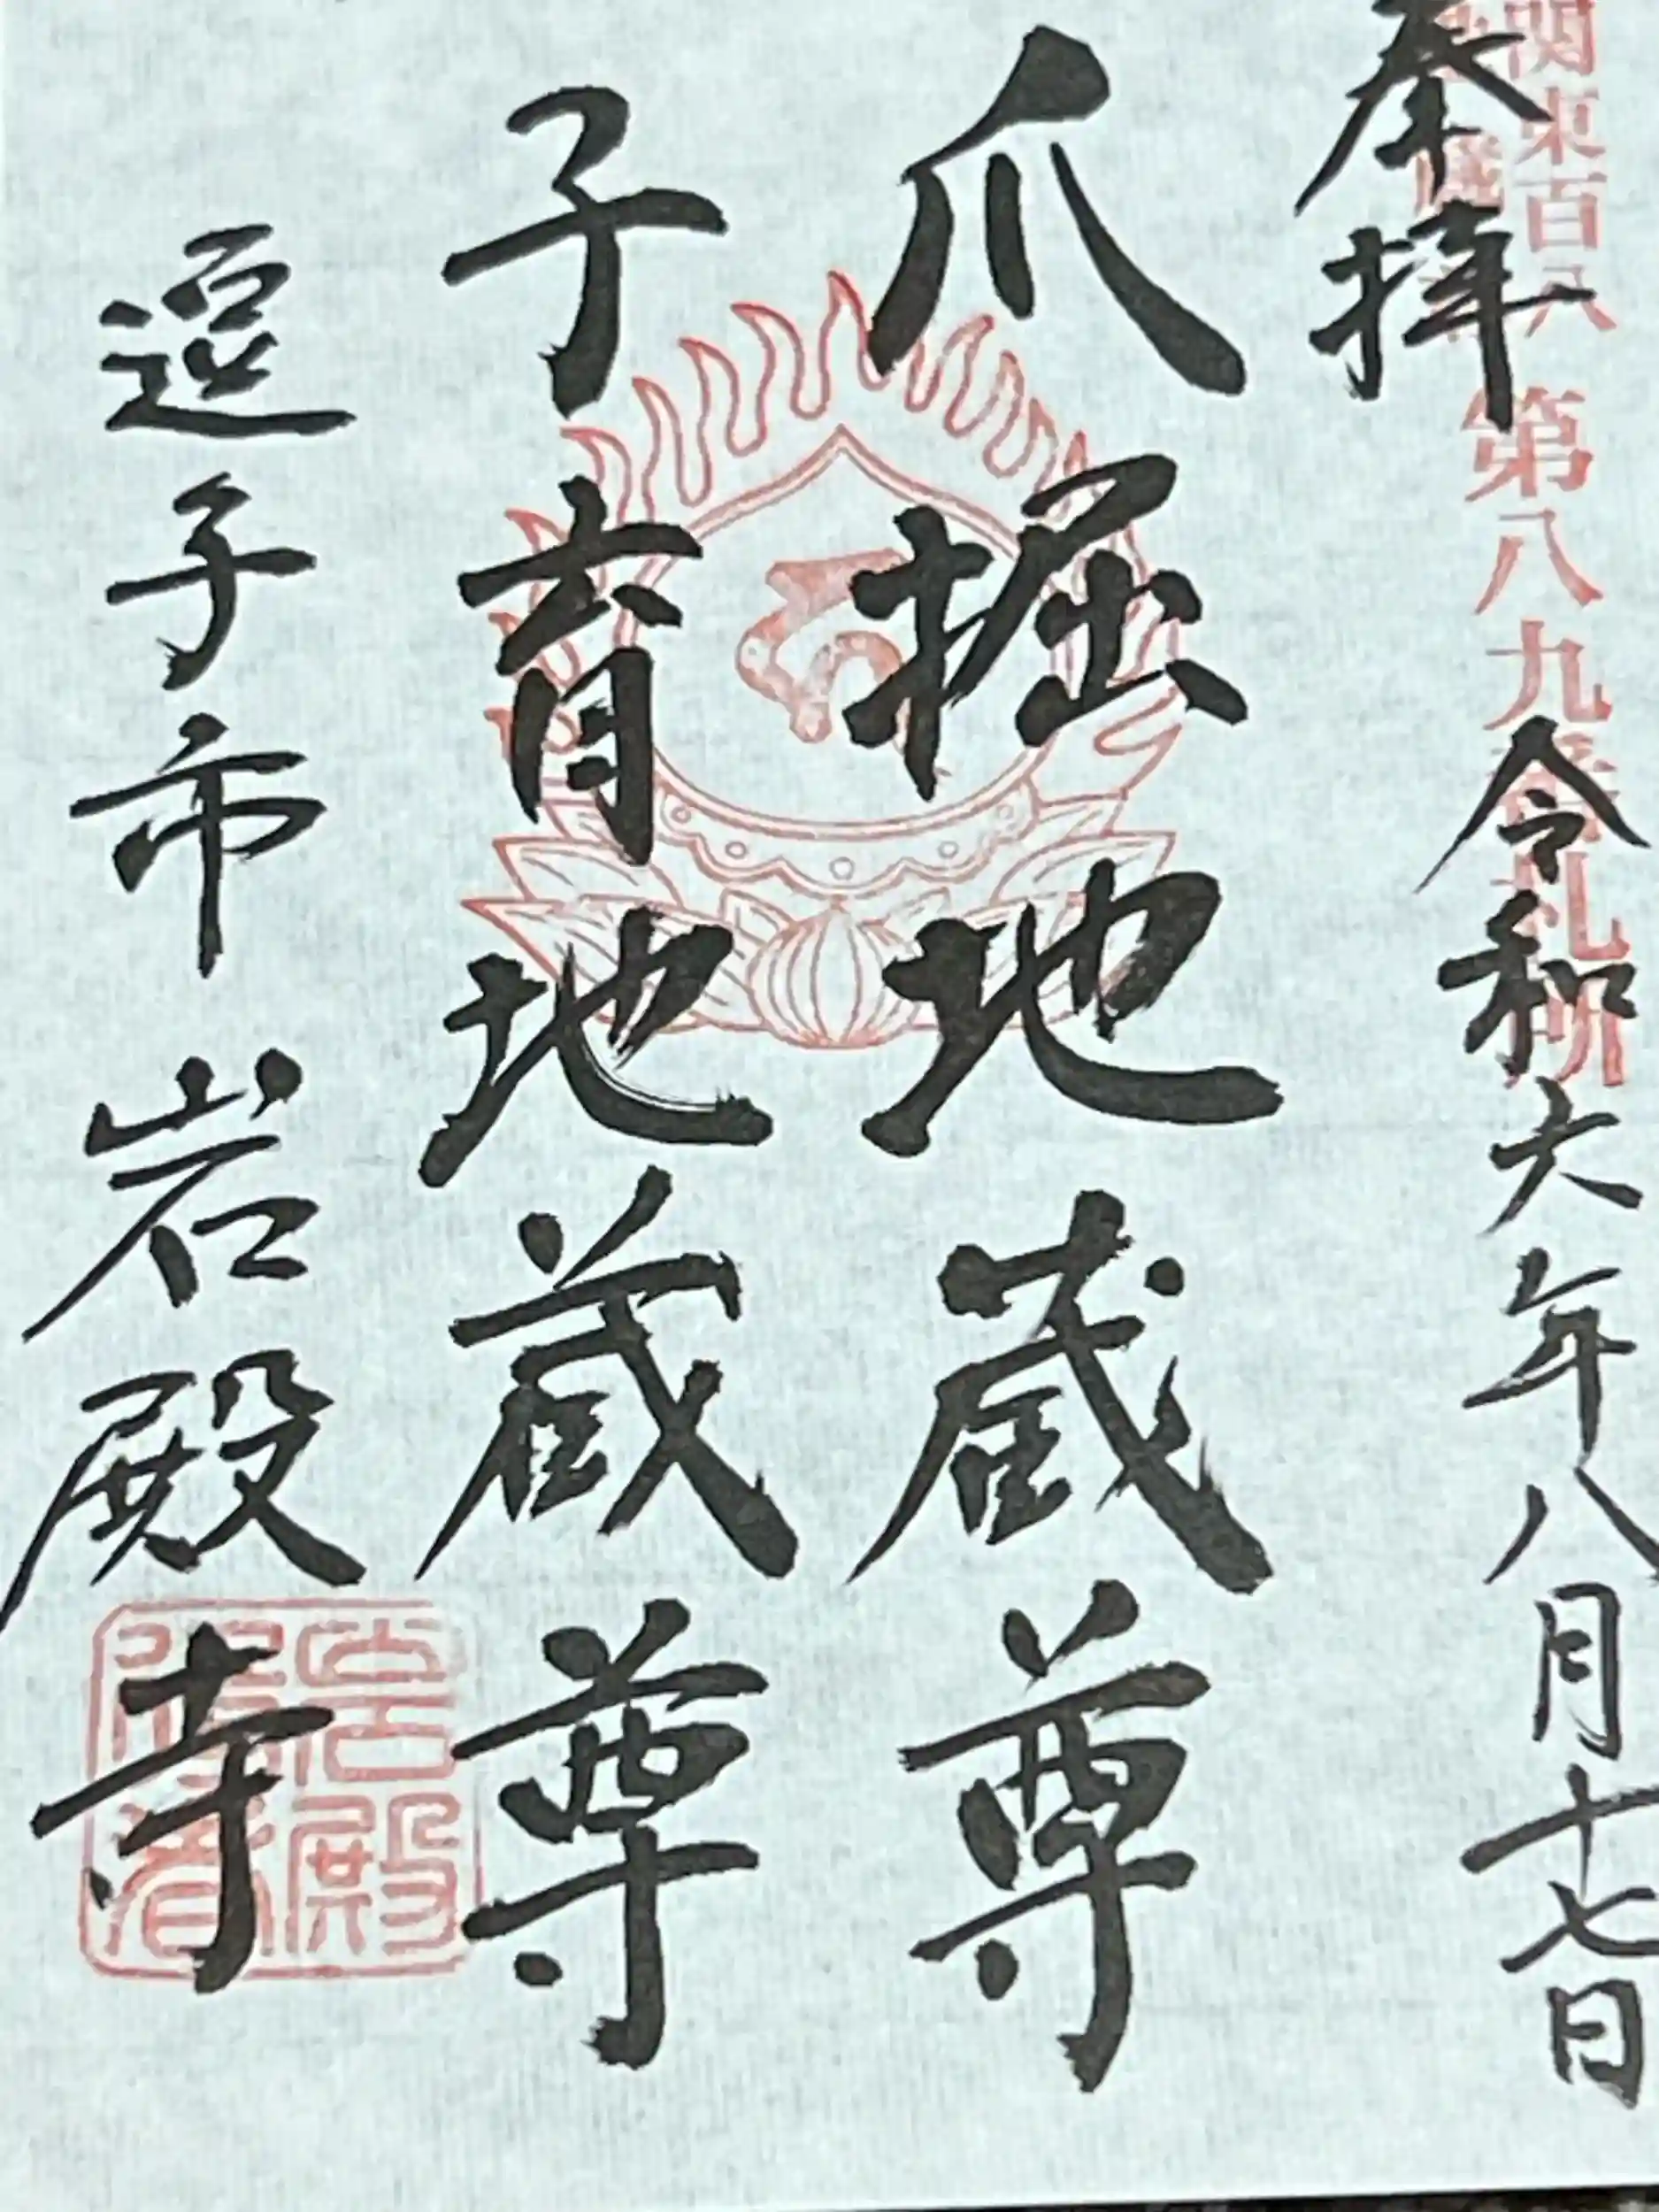 奉拝
関東百八
第八九番札所
令和六年八月十七日
爪掘地蔵尊
子育地蔵尊
逗子市 岩殿寺